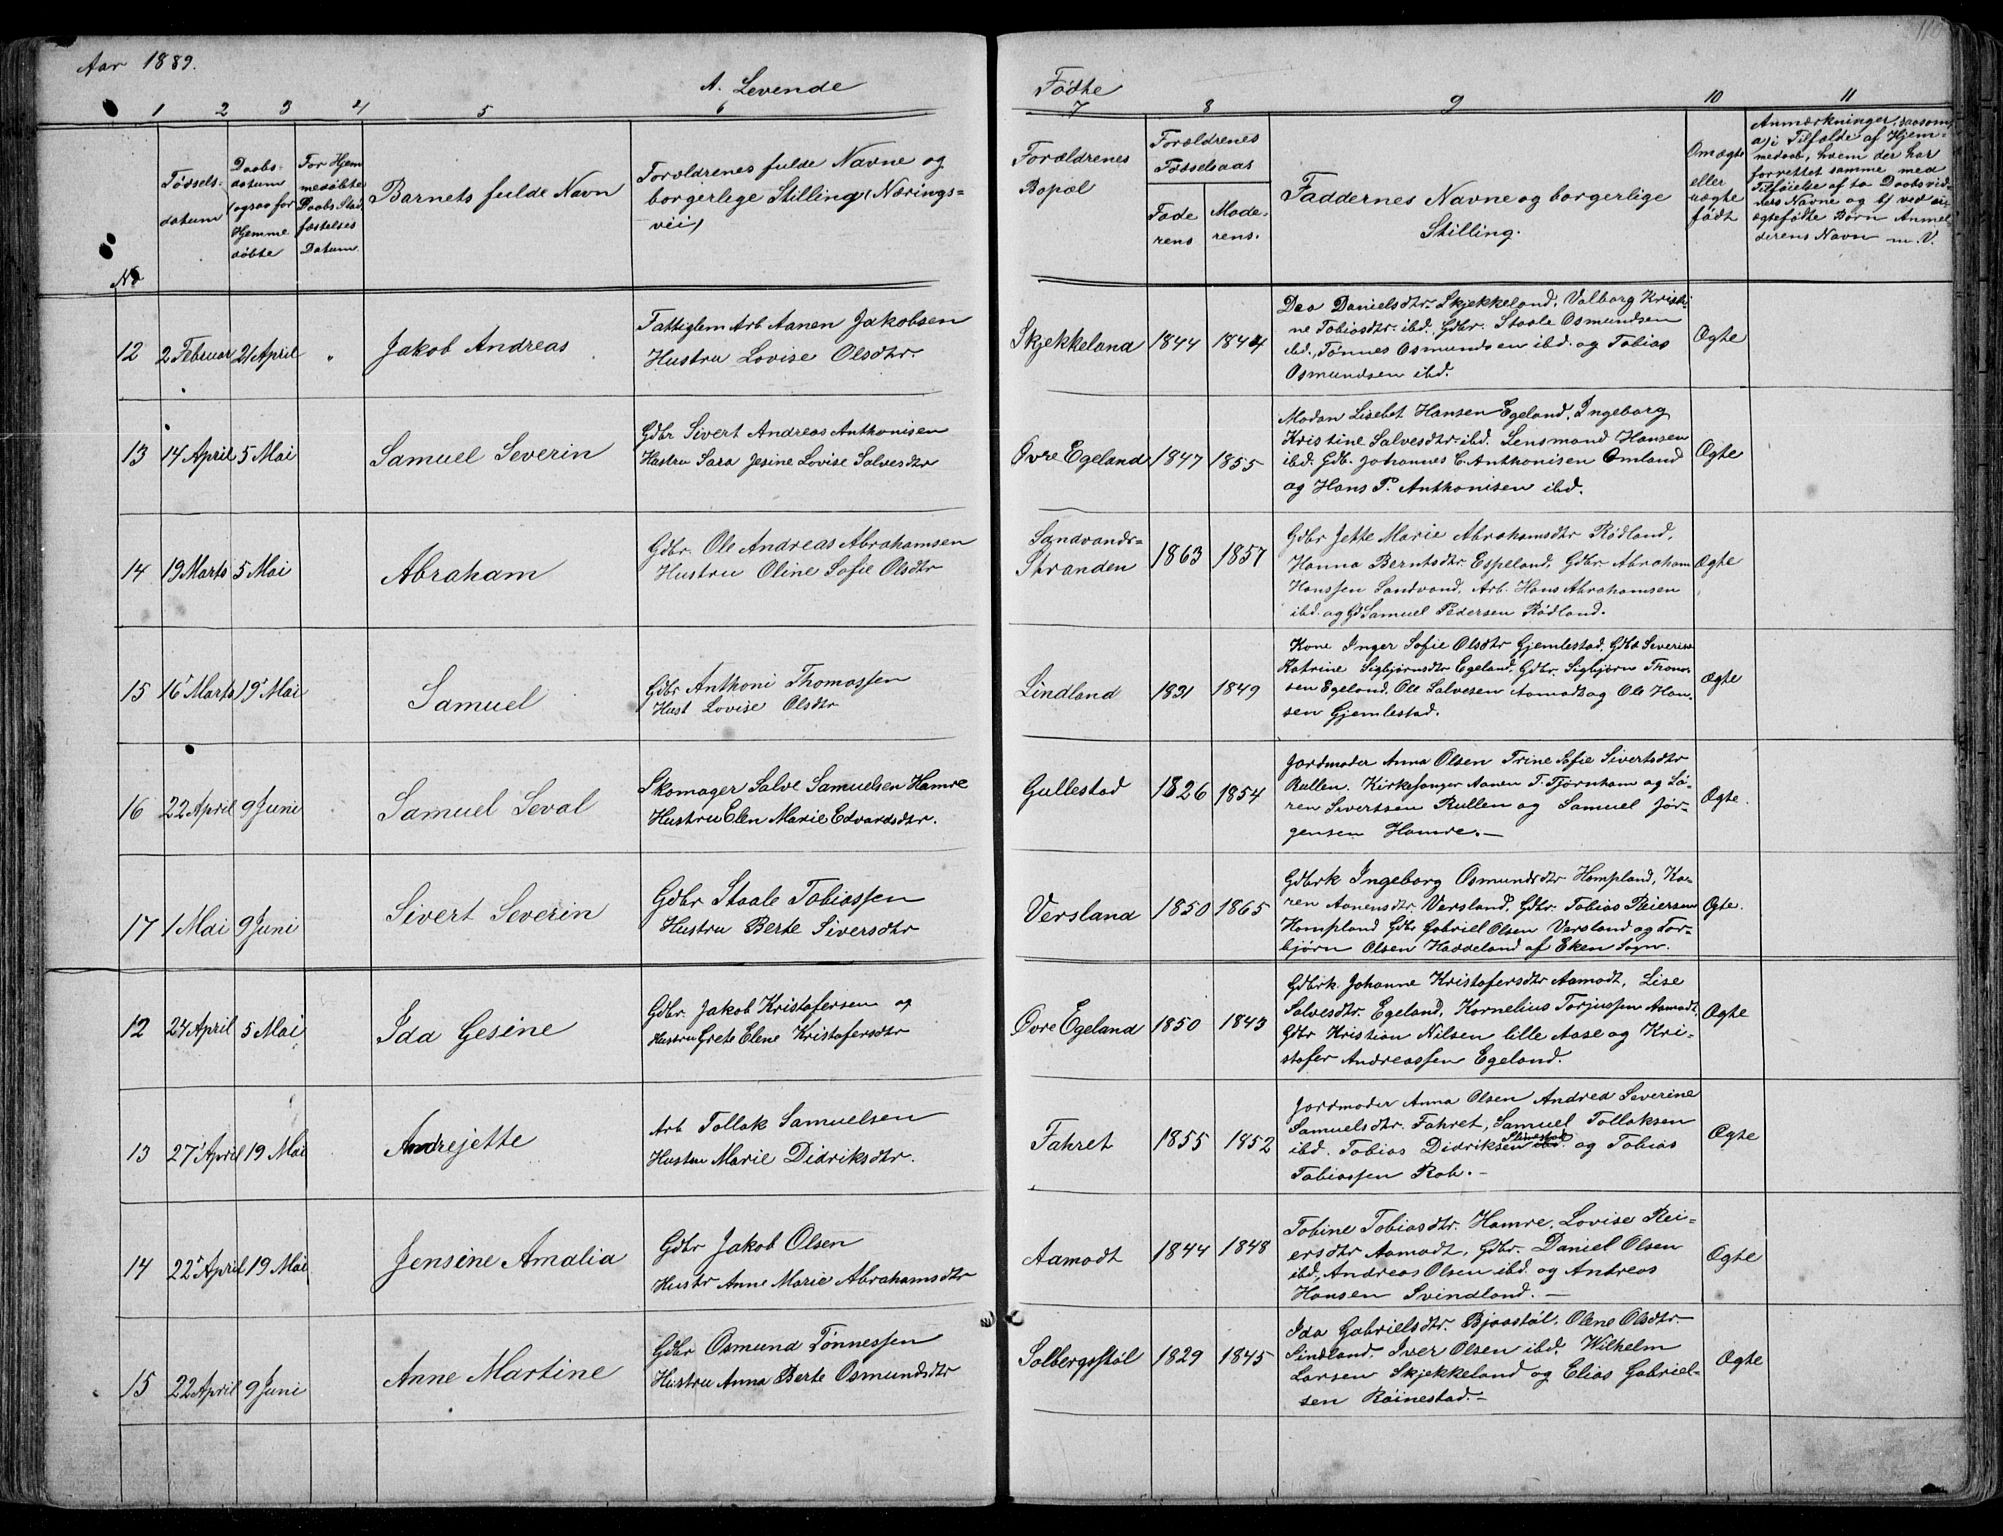 Aar 1889.
A. Levende
Födte
110
1 2 3 4 5 6 7 8 9 10 11
No
Födsels-
datum
Daabs-
datum
(ogsaa for
Hjemme
döbte
For Hjem
medöbte
Daabs Stad
fæstelses
Datum.
Barnets fulde Navn
Forældrenes fulde Navne og
borgerlige Stilling (Nærings-
vei)
Forældrenes
Bopæl
Forældrenes
Födselsaar
Fade
rens
Mode-
rens.
Faddernes Navne og borgerlige
Stilling.
Om ægte
eller
uægte
födt
Anmærkninger, saasom
a) i Tilfælde af Hjem-
medaab, hvem der har
forrettet samme med
Tilföielse af to Daabsvid-
ners Navne og b) ved
uægtefödte Börn Anmel
derens Navn m. V.
12 2 Februar 21 April " Jakob Andreas
Fattiglem Arb Aanen Jakobsen
Hustru Lovise Olsdtr
Skjekkeland 1844 1844
Dea Danielsdtr. Skjekkeland, Valborg Kristi-
ne Tobiasdtr. ibd. Gdbr. Staale Osmundsen
ibd., Tønnes Osmundsen ibd. og Tobias
Osmundsen ibd.
Ægte
13 14 April 5 Mai Samuel Severin
Gdbr Sivert Andreas Anthonisen
Hustru Sara Jesine Lovise Salvesdtr
Øvre Egeland 1847 1855
Madam Lisebet Hansen Egeland, Ingeborg
Kristine Salvesdtr. ibd. Lensmand Hansen
ibd. Gdb. Johannes C. Anthonisen Omland
og Hans P. Anthonisen ibd.
Ægte
14 19 Marts 5 Mai Abraham
Gdbr. Ole Andreas Abrahamsen
Hustru Oline Sofie Olsdtr
Sandvands-
Stranden 1863 1857
Gdbr Jette Marie Abrahamsdtr Rödland,
Hanna Berntsdtr. Espeland, Gdbr Abraham
Hanssen Sandvand, Arb. Hans Abrahamsen
ibd. og G Samuel Pedersen Rödland.
Ægte
15 16 Marts 19 Mai Samuel
Gdbr Anthoni Thomassen
Hust Lovise Olsdtr
Lindland 1821 1849
Kone Inger Sofie Olsdtr Gjemlestad, Gdb Severine
Katrine Sigbjørnsdtr Egeland, Gdbr. Sigbjørn Thomas-
sen Egeland, Ole Salvesen Aamodt og Ole Han-
sen Gjemlestad.
Ægte
16 22 April 9 Juni Samuel Leval
Skomager Salve Samuelsen Hamre
Hustru Elen Marie Edvardsdtr.
Gullestad 1826 1854
Jordmoder Anna Olsen Trine Sofie Sivertsdtr
Rullen. Kirkesanger Aanen T. Tjørnham og Sö-
ren Sivertsen Rullen og Samuel Jør-
gensen Hamre.—
Ægte.
17 1 Mai 9 Juni Sivert Severin
Gdbr Staale Tobiassen
Hustru Berte Siversdtr
Versland 1850 1865
Gdbrk Ingeborg Osmundsdtr Hompland, Ka-
ren Aanensdtr. Versland, Gdbr. Tobias Reiersen
Hompland Gdbr Gabriel Olsen Versland og Tor-
bjørn Olsen Haddeland af Eken Sogn.
Ægte.
12 24 April 5 Mai Ida Gesine
Gdbr. Jakob Kristofersen og
Hustru Grete Elene Kristofersdtr
Øvre Egeland 1850 1843
Gdbrk. Johanne Kristofersdtr Aamodt, Lise
Salvesdtr. Egeland, Kornelius Torjussen Aamodt,
Gdbr Kristian Nilsen lille Aase og Kri-
stofer Andreassen Egeland.
Ægte
13 27 April 19 Mai Andrejette
Arb Tollak Samuelsen
Hustru Marie Didriksdtr.
Fahret 1855 1852
Jordmoder Anna Olsen Andrea Severine
Samuelsdtr. Fahret, Samuel Tollaksen
ibd. Tobias Didriksen ibd. og Tobias
Tobiassen Rob.—
Ægte
14 22 April 19 Mai Jensine Amalia
Gdbr Jakob Olsen
Hustr Anne Marie Abrahamsdtr
Aamodt 1844 1848
Tobine Tobiasdtr. Hamre. Lovise Rei-
ersdtr Aamodt, Gdbr. Daniel Olsen
ibd., Andreas Olsen ibd. og Andreas
Hansen Svindland.—
Ægte
15 22 April 9 Juni Anne Martine
Gdbr Osmund Tønnessen
Hustru Anna Berte Osmundsdtr
Solbergsstøl 1829 1845
Ida Gabrielsdtr. Bjaastøl, Olene Olsdtr
Sindland. Iver Olsen ibd. Wilhelm
Larsen Skjekkeland og Elias Gabriel-
sen Röinestad.—
Ægte